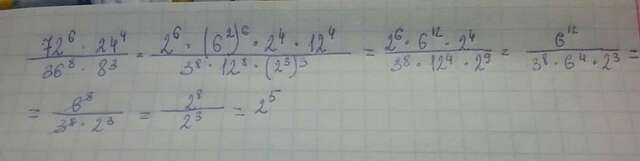 72⁶ · 24⁴ / 36⁸ · 8³ = 2⁶ · (6²)⁶ · 2⁴ · 12⁴ / 3⁸ · 12⁸ · (2³)³ = 2⁶ · 6¹² · 2⁴ / 3⁸ · 12⁴ · 2⁹ = 6¹² / 3⁸ · 6⁴ · 2³ =
= 6⁸ / 3⁸ · 2³ = 2⁸ / 2³ = 2⁵